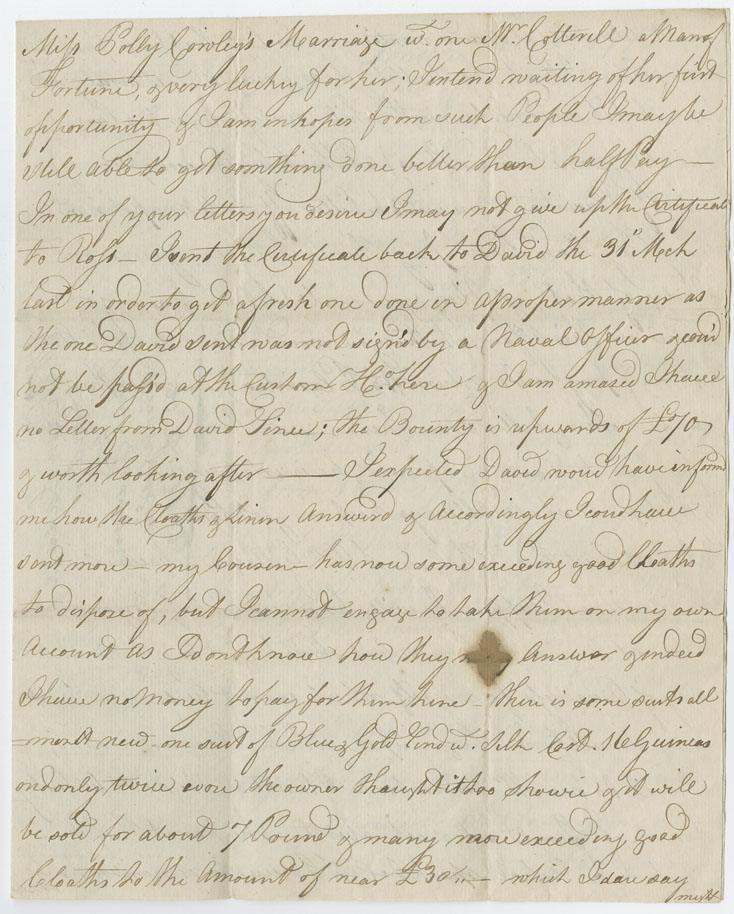 Miss Polly Cowley's Marriage wt. one Mr Cotterell a Man of
Fortune, & very luckey for her; I intend waiting of her first
opportunity & I am in hopes from such People I may be
still able to get somthing done better than half Pay —
In one of your letters you desire I may not give up the Certificate
to Ross — I sent the Certificate back to David the 31st Mch
last in order to get a fresh one done in a proper manner as
the one David sent was not sign'd by a Naval Officer & cou'd
not be pass'd at the Custom Ho. here & I am amazed I have
no Letter from David Since; the Bounty is upwards of £70
& worth looking after — I expected David woud have inform
me how the Cloaths & Linin Answerd & Accordingly I coud have
sent more — my Cousin — has now some exceeding good Cloaths
to dispose of, but I cannot engage to take them on my own
Account as I dont know how they may Answer & indeed
I have no Money to pay for them here — there is some suits all
-most new - one suit of Blue & Gold lind wt. Silk Cost. 16 Guineas
and only twice wore the owner thought it too showie & it will
be sold for about 7 Pound & many more exceeding good
Cloaths to the Amount of near £30 — which I dare say
might